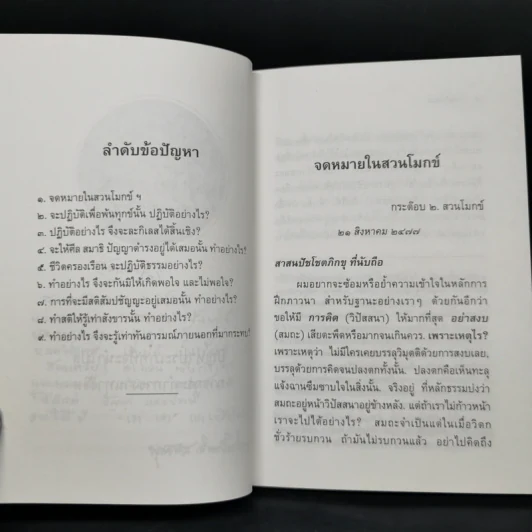 ลำดับข้อปัญหา
๑. จดหมายในสวนโมกข์ ฯ
๒. จะปฏิบัติเพื่อพ้นทุกข์นั้น ปฏิบัติอย่างไร?
๓. ปฏิบัติอย่างไร จึงจะละกิเลสได้สิ้นเชิง?
๔. จะให้ศีล สมาธิ ปัญญาดำรงอยู่ได้เสมอนั้น ทำอย่างไร?
๕. ชีวิตครองเรือน จะปฏิบัติธรรมอย่างไร?
๖. ทำอย่างไร จึงจะกันมิให้เกิดพอใจ และไม่พอใจ?
๗. การที่จะมีสติสัมปชัญญะอยู่เสมอนั้น ทำอย่างไร?
๘. ทำสติให้รู้เท่าสังขารนั้น ทำอย่างไร?
๙. ทำอย่างไร จึงจะรู้เท่าทันอารมณ์ภายนอกที่มากระทบ?
จดหมายในสวนโมกข์
กระต๊อบ ๒. สวนโมกข์
๒๑ สิงหาคม ๒๔๗๗
สาสนปัชโชตภิกขุ ที่นับถือ
ผมอยากจะซ้อมหรือย้ำความเข้าใจในหลักการ
ฝึกภาวนา สำหรับฐานะอย่างเราๆ ด้วยกันอีกว่า
ขอให้มี การคิด (วิปัสสนา) ให้มากที่สุด อย่าสงบ
(สมถะ) เสียตะพึดหรือมากจนเกินควร. เพราะเหตุไร?
เพราะเหตุว่า ไม่มีใครเคยบรรลุวิมุตติด้วยการสงบเลย,
บรรลุด้วยการคิดจนปลงตกทั้งนั้น. ปลงตกคือเห็นทะลุ
แจ้งฉานซึมซาบใจในสิ่งนั้น. จริงอยู่ ที่หลักธรรมบ่งว่า
สมถะอยู่หน้าวิปัสสนาอยู่ข้างหลัง. แต่ถ้าเราไม่ก้าวหน้า
เราจะไปได้อย่างไร? สมถะจำเป็นแต่ในเมื่อวิตก
ชั่วร้ายรบกวน ถ้ามันไม่รบกวนแล้ว อย่าไปคิดถึง